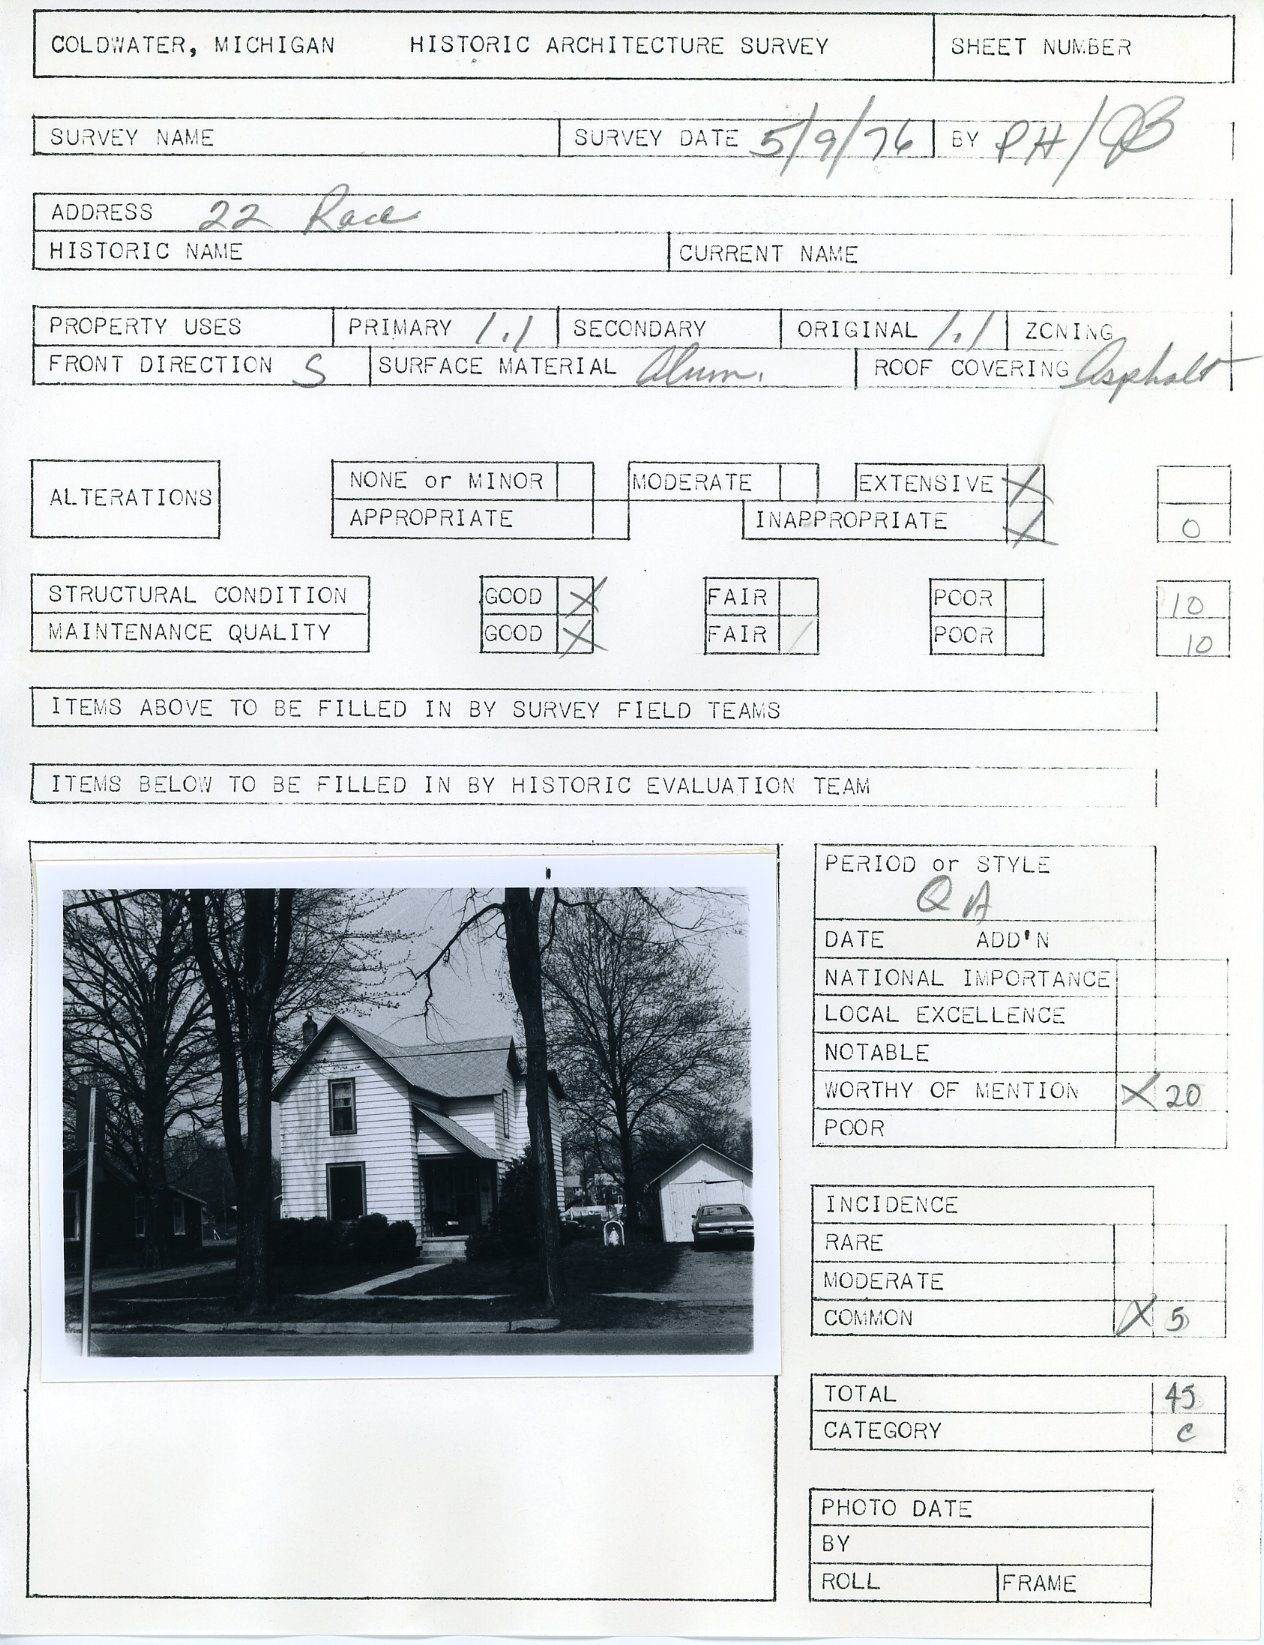 COLDWATER, MICHIGAN HISTORIC ARCHITECTURE SURVEY SHEET NUMBER
SURVEY NAME SURVEY DATE 5/9/76 BY PH/JB
ADDRESS 22 Race
HISTORIC NAME CURRENT NAME
PROPERTY USES PRIMARY 1.1 SECONDARY ORIGINAL 1.1 ZONING
FRONT DIRECTION S SURFACE MATERIAL Alum. ROOF COVERING Asphalt
ALTERATIONS NONE or MINOR MODERATE EXTENSIVE X
APPROPRIATE INAPPROPRIATE X 0
STRUCTURAL CONDITION GOOD X FAIR POOR 10
MAINTENANCE QUALITY GOOD X FAIR POOR 10
ITEMS ABOVE TO BE FILLED IN BY SURVEY FIELD TEAMS
ITEMS BELOW TO BE FILLED IN BY HISTORIC EVALUATION TEAM
PERIOD or STYLE
QA
DATE ADD'N
NATIONAL IMPORTANCE
LOCAL EXCELLENCE
NOTABLE
WORTHY OF MENTION X 20
POOR
INCIDENCE
RARE
MODERATE
COMMON X 5
TOTAL 45
CATEGORY C
PHOTO DATE
BY
ROLL FRAME